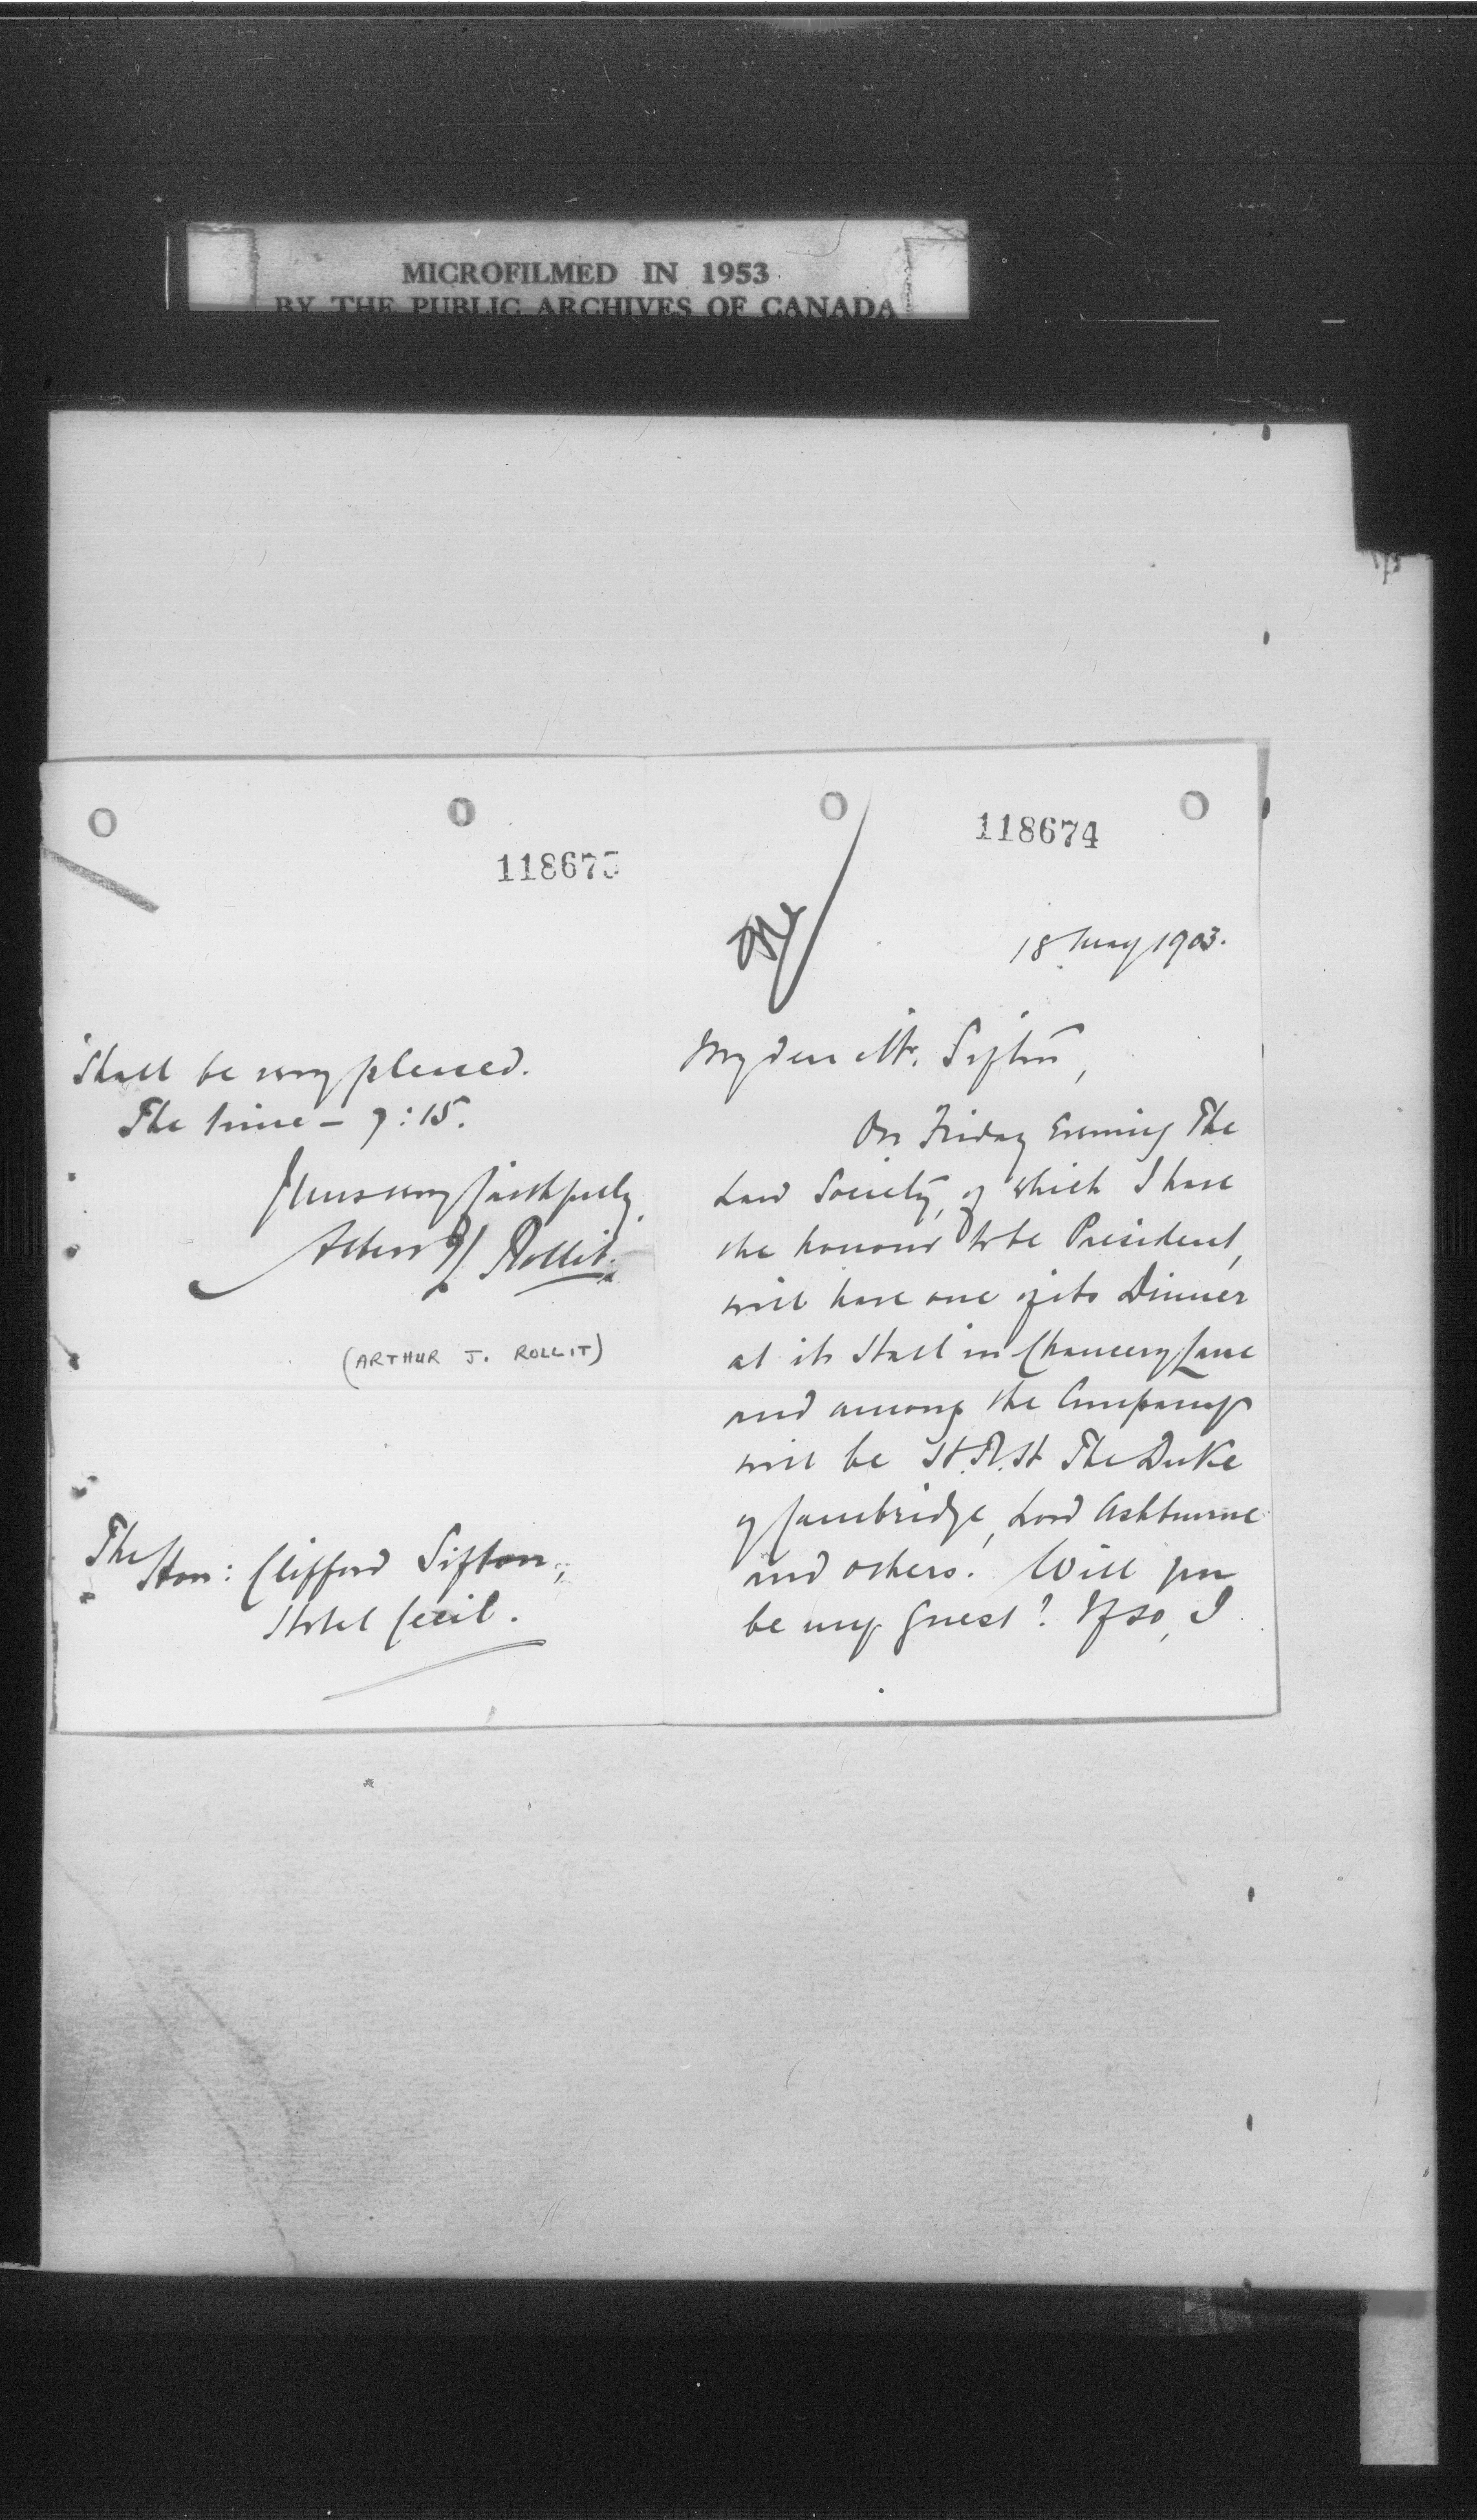 MICROFILMED IN 1953
BY THE PUBLIC ARCHIVES OF CANADA
118674
18 May 1903.
My dear Mr. Sifton,
On Friday Evening The
Law Society, of which I have
the honour to be President,
will have one of its Dinner
at its Hall in Chancery Lane
and among the Company
will be H.R.H The Duke
of Cambridge, Lord Ashbourne
and others. Will you
be my Guest? If so, I
118675
shall be very pleased.
The time - 7:15.
Yours very faithfully,
Albert K Rollit.
(ARTHUR J. ROLLIT)
The Hon: Clifford Sifton,
Hotel Cecil.